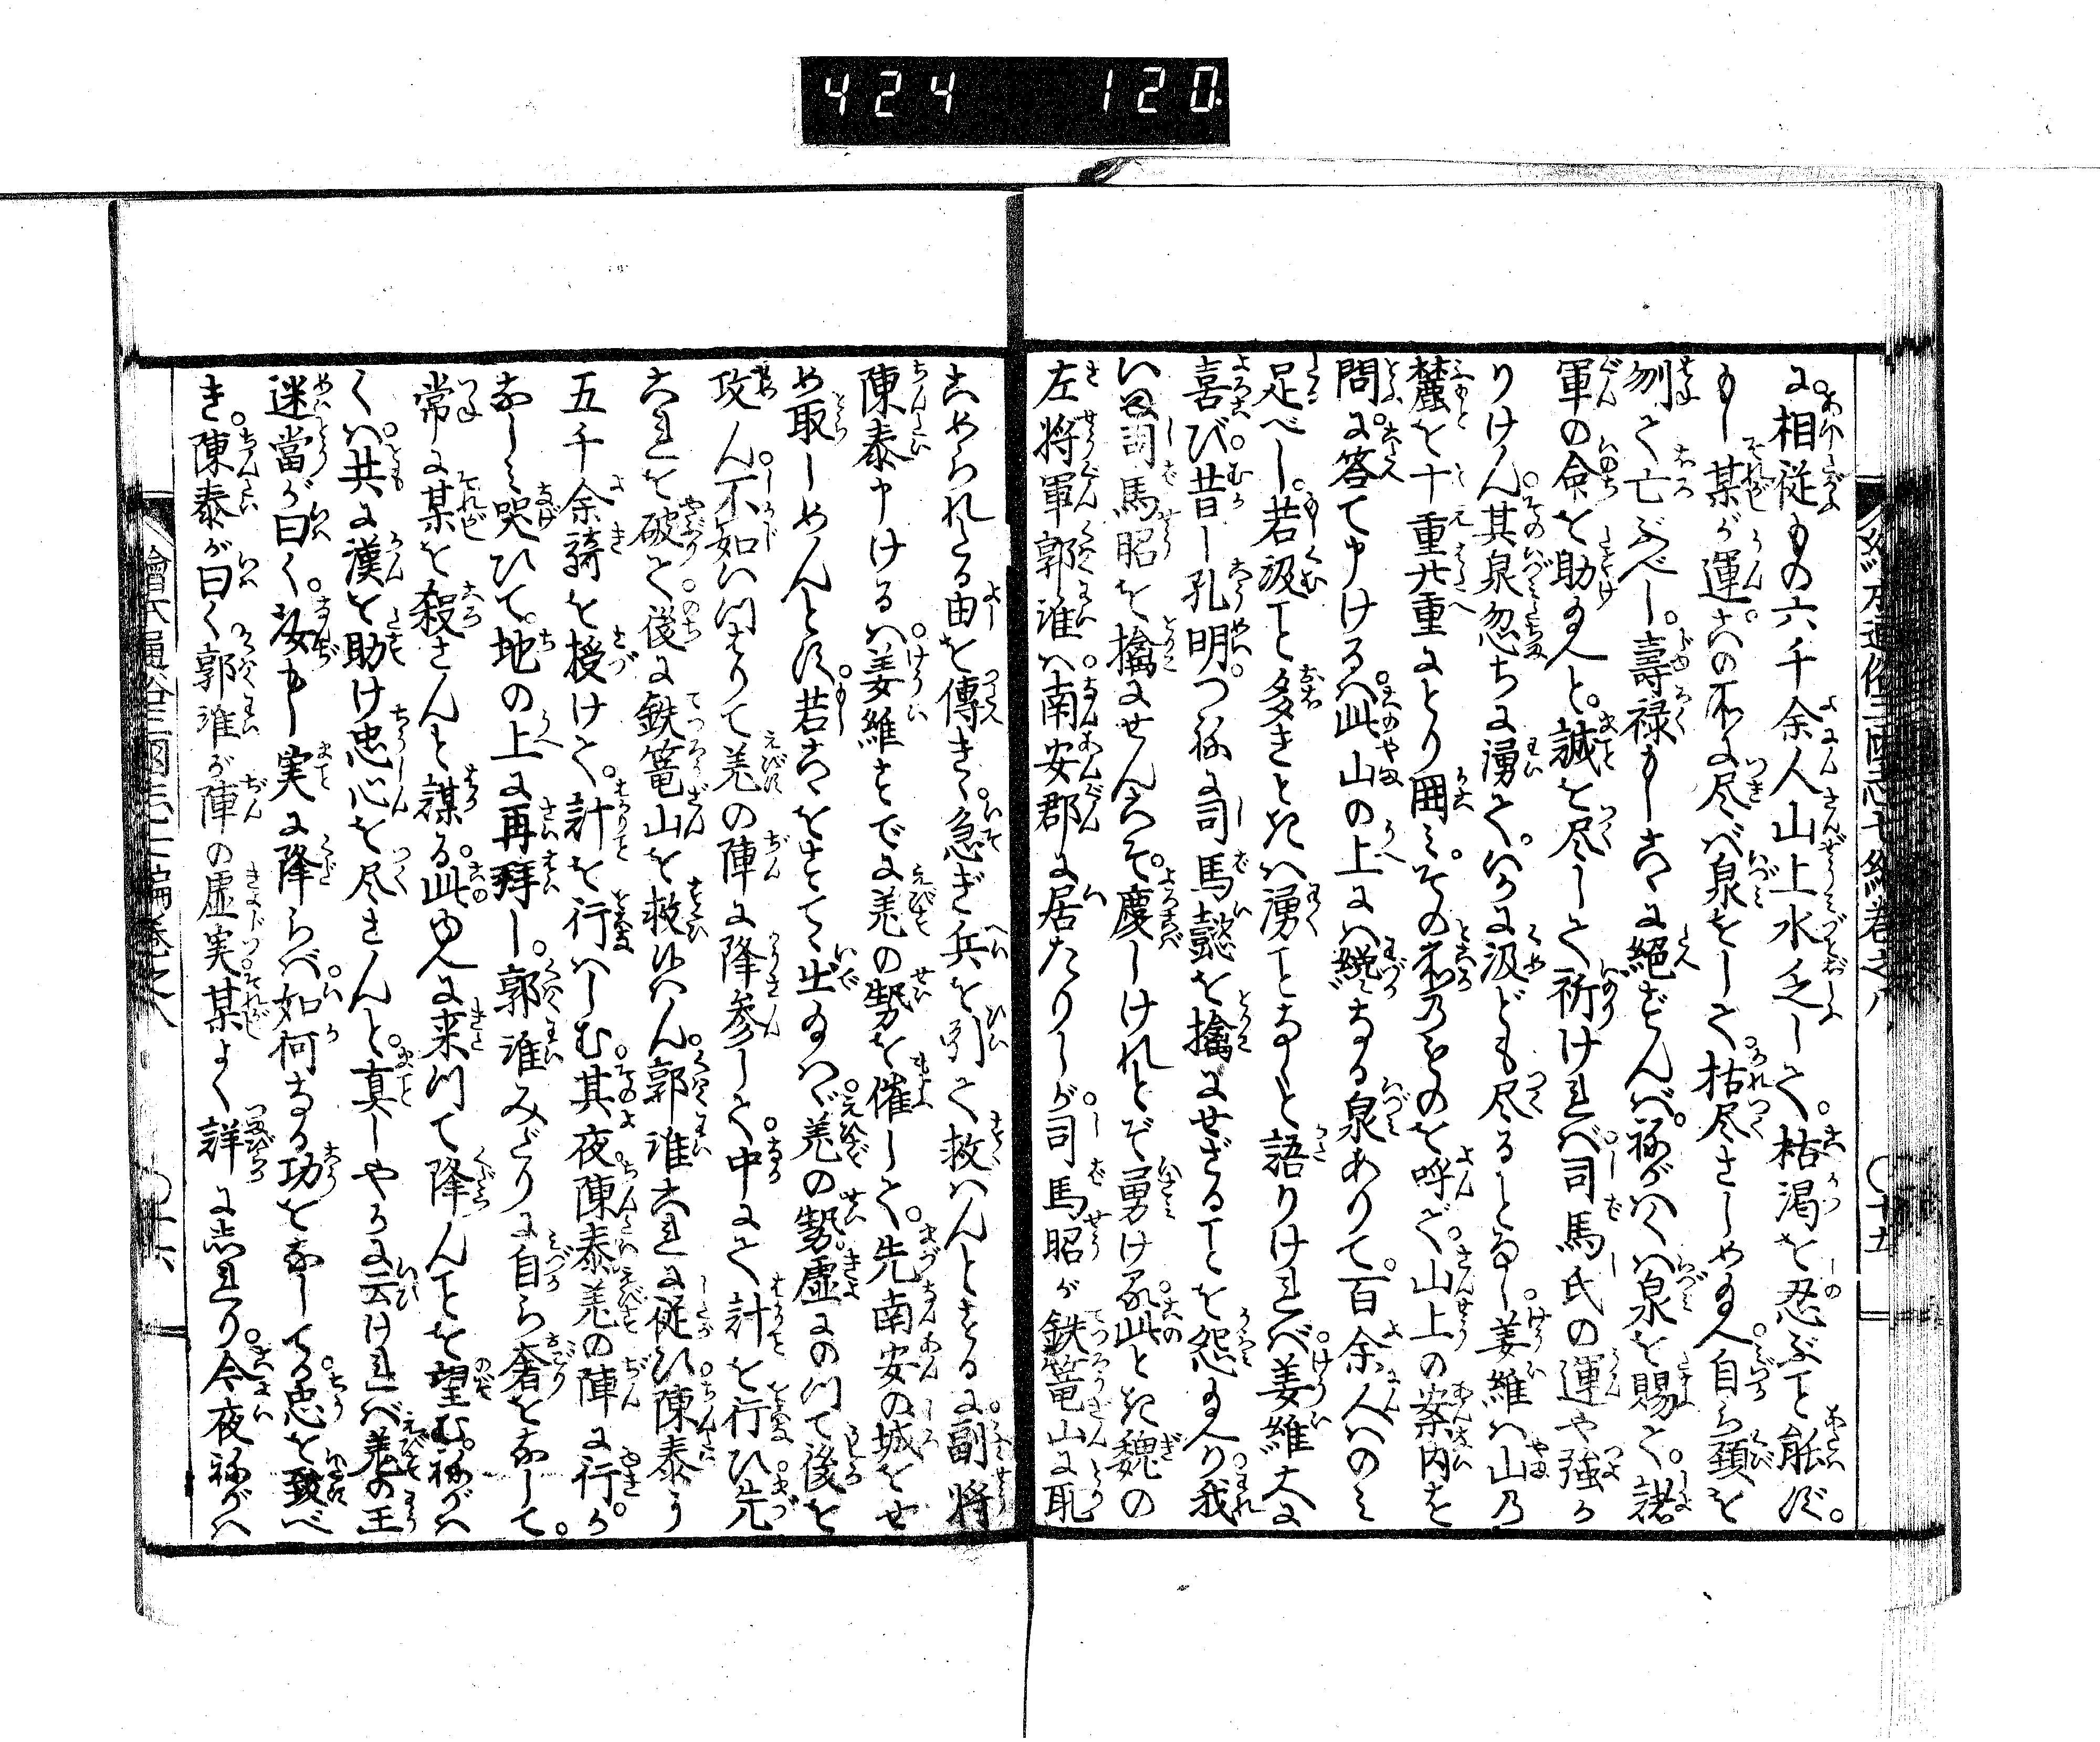 424 120
繪本通俗三國志七編卷之八 〇十五
に。相従もの六千余人山上水乏しく。枯渇を忍ぶこと能ず。
もし某が運。この所に尽べ泉をして枯尽さしめ玉へ。自ら頚を
刎て亡ぶべし。壽禄もしこゝに絶ずんば。ねがハくハ泉を賜て。諸
軍の命を助玉へと。誠を尽して祈ければ司馬氏の運や強か
りけん。其泉忽ちに湧て。いかに汲ども尽ることなし。姜維ハ山乃
麓を十重廿重にとり囲ミ。その所乃ものを呼で。山上の案内を
問に。答て申けるハ此山の上にハ纔なる泉ありて。百余人ハのミ
足べし。若汲こと多きときハ湧ことなしと語りければ。姜維大に
喜び。昔し孔明。つねに司馬懿を擒にせざることを怨玉へり。我
いま司馬昭を擒にせんぞ。慶しけれとぞ勇ける。此とき魏の
左将軍郭淮ハ。南安郡に居たりしが。司馬昭が鉄篭山に取
こめられたる由を傳きゝ。急ぎ兵を引て救ハんとするに。副将
陳泰申けるハ。姜維すでに羌の勢を催して。先南安の城をせ
め取しめんとす。若こゝをすてゝ出玉ハゞ。羌の勢。虚にのつて後を
攻ん。不如いつはりて羌の陣に降参して。中にて計を行ひ。先
これを破て。後に鉄篭山を救ひ玉ハん。郭淮これに従ひ。陳泰に
五千余騎を授けて。計を行ハしむ。其夜。陳泰羌の陣に行。か
なしミ哭ひて。地の上に再拜し。郭淮みだりに自ら奢をなして。
常に某を殺さんと謀る。此ゆへに来つて降んことを望む。ねがハ
くハ。共に漢を助け忠心を尽さんと。真しやかに云ければ。羌の王
迷當が曰く。汝もし実に降らば。如何なる功をなして忠を致べ
き。陳泰が曰く郭淮が陣の虚実。某よく詳に志れり。今夜ねがハ
繪本通俗三國志七編卷之八 〇十六